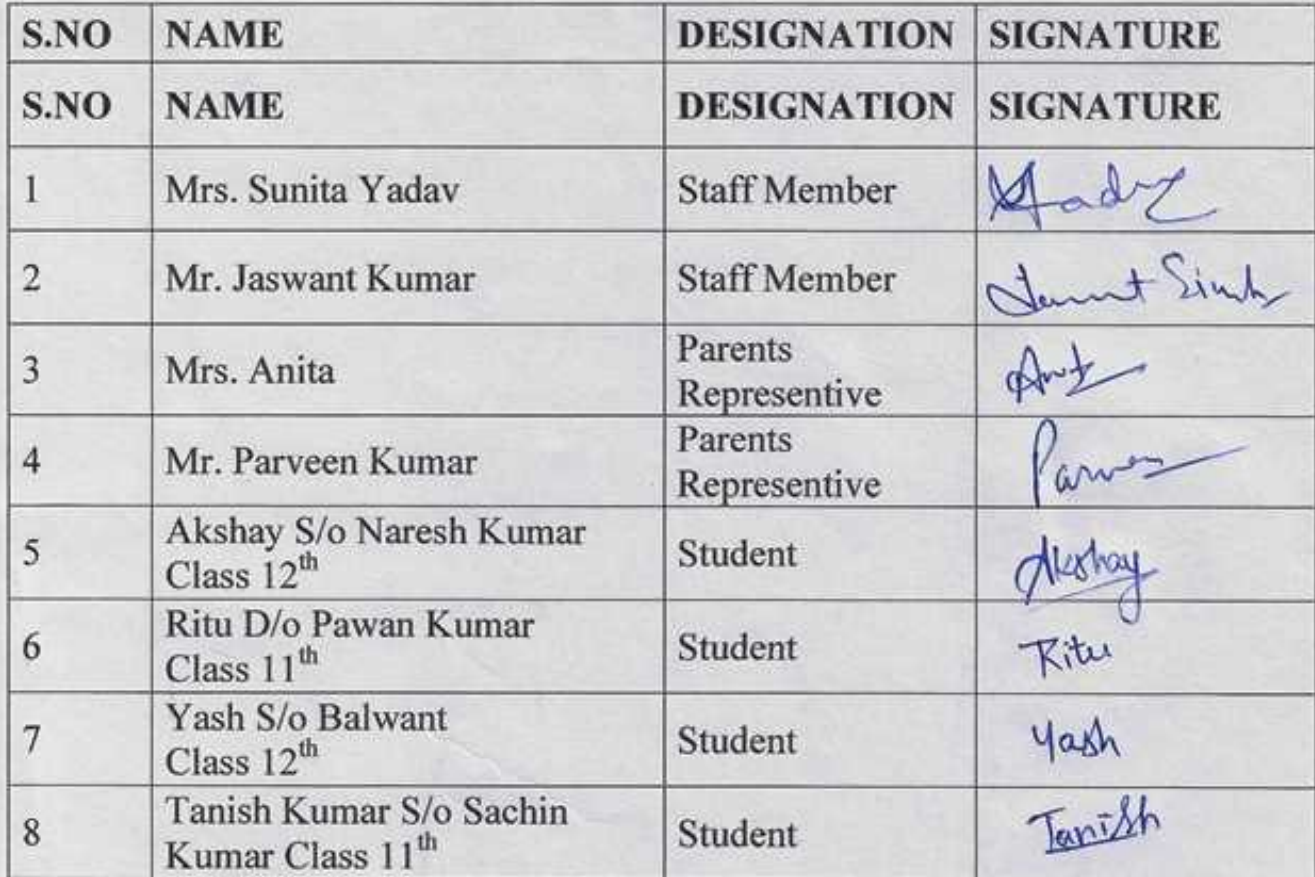 S.NO NAME DESIGNATION SIGNATURE
S.NO NAME DESIGNATION SIGNATURE
1 Mrs. Sunita Yadav Staff Member Yadav
2 Mr. Jaswant Kumar Staff Member Singh
3 Mrs. Anita Parents
Representive
4 Mr. Parveen Kumar Parents
Representive
Parveen
5 Akshay S/o Naresh Kumar
Class 12th
Student Akshay
6 Ritu D/o Pawan Kumar
Class 11th
Student Ritu
7 Yash S/o Balwant
Class 12th
Student Yash
8 Tanish Kumar S/o Sachin
Kumar Class 11th
Student Tanish